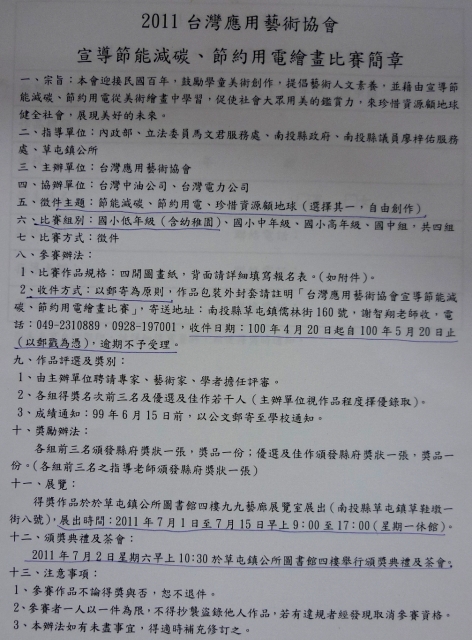 2011 台灣應用藝術協會
宣導節能減碳、節約用電繪畫比賽簡章
一、宗旨：本會迎接民國百年，鼓勵學童美術創作，提倡藝術人文素養，並藉由宣導節
能減碳、節約用電從美術繪畫中學習，促使社會大眾用美的鑑賞力，來珍惜資源顧地球
健全社會，展現美好的未來。
二、指導單位：內政部、立法委員馬文君服務處、南投縣政府、南投縣議員廖梓佑服務
處、草屯鎮公所
三、主辦單位：台灣應用藝術協會
四、協辦單位：台灣中油公司、台灣電力公司
五、徵件主題：節能減碳、節約用電、珍惜資源顧地球（選擇其一，自由創作）
六、比賽組別：國小低年級（含幼稚園）、國小中年級、國小高年級、國中組，共四組
七、比賽方式：徵件
八、參賽辦法：
1、比賽作品規格：四開圖畫紙，背面請詳細填寫報名表。（如附件）。
2、收件方式：以郵寄為原則，作品包裝外封套請註明「台灣應用藝術協會宣導節能減
碳、節約用電繪畫比賽」，寄送地址：南投縣草屯鎮儒林街160號，謝智翔老師收，電
話：049-2310889，0928-197001，收件日期：100年4月20日起自100年5月20日止
（以郵戳為憑），逾期不予受理。
九、作品評選及獎別：
1、由主辦單位聘請專家、藝術家、學者擔任評審。
2、各組得獎名次前三名及優選及佳作若干人（主辦單位視作品程度擇優錄取）。
3、成績通知：99年6月15日前，以公文郵寄至學校通知。
十、獎勵辦法：
各組前三名頒發縣府獎狀一張，獎品一份；優選及佳作頒發縣府獎狀一張，獎品一
份。（各組前三名之指導老師頒發縣府獎狀一張）
十一、展覽：
得獎作品於於草屯鎮公所圖書館四樓九九藝廊展覽室展出（南投縣草屯鎮草鞋墩一
街八號），展出時間：2011年7月1日至7月15日早上9:00至17:00（星期一休館）。
十二、頒獎典禮及茶會：
2011年7月2日星期六早上10:30於草屯鎮公所圖書館四樓舉行頒獎典禮及茶會。
十三、注意事項：
1、參賽作品不論得獎與否，恕不退件。
2、參賽者一人以一件為限，不得抄襲盜錄他人作品，若有違規者經發現取消參賽資格。
3、本辦法如有未盡事宜，得適時補充修訂之。